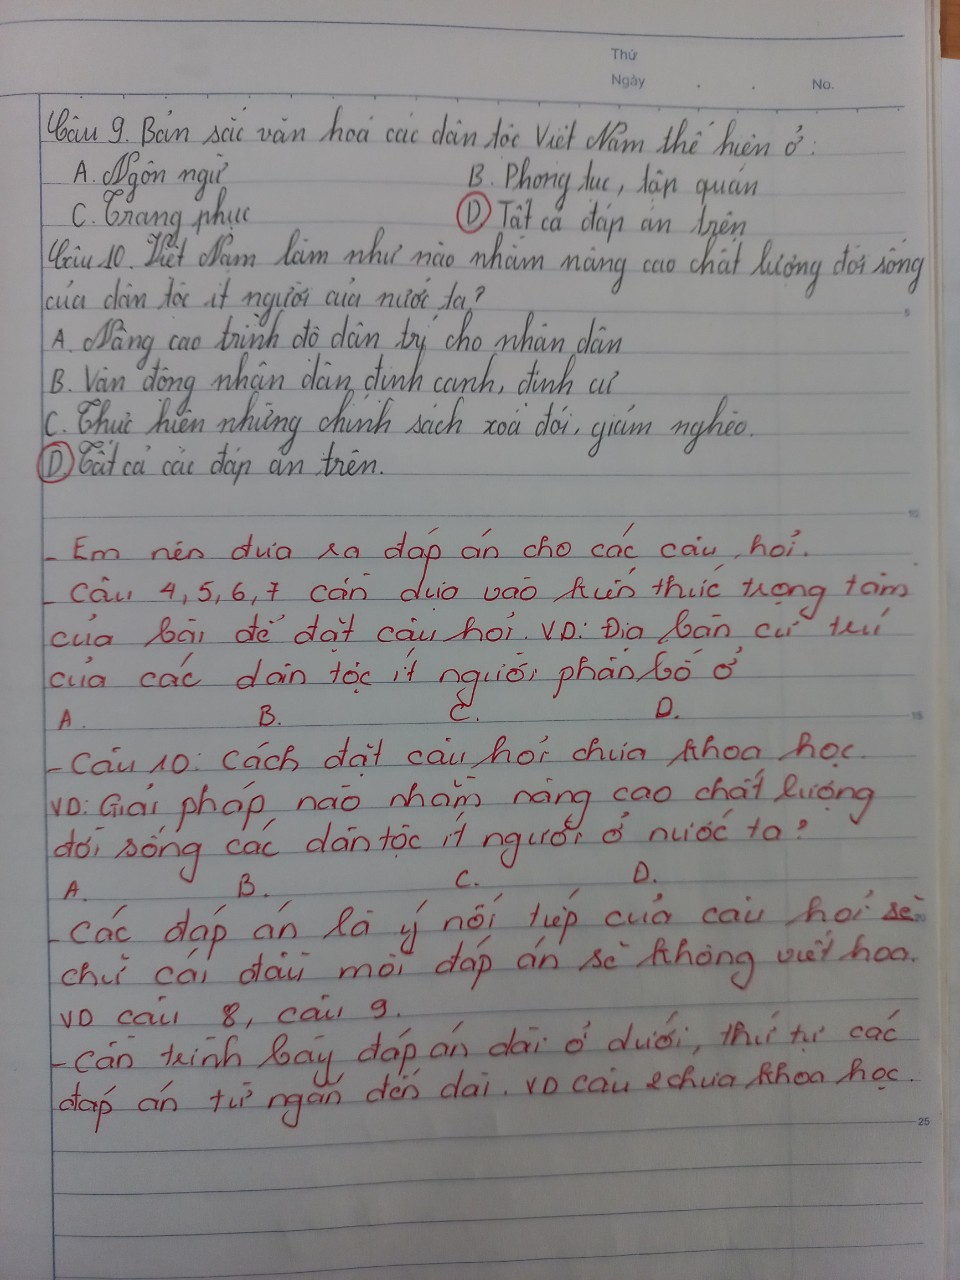 Thứ
Ngày . . No.
Câu 9. Bản sắc văn hoá các dân tộc Việt Nam thể hiện ở:
A. Ngôn ngữ B. Phong tục, tập quán
C. Trang phục D Tất cả đáp án trên
Câu 10. Việt Nam làm như nào nhằm nâng cao chất lượng đời sống
của dân tộc ít người của nước ta?
5
A. Nâng cao trình độ dân trí cho nhân dân
B. Vận động nhân dân định canh, định cư
C. Thực hiện những chính sách xoá đói, giảm nghèo.
D. Tất cả các đáp án trên.
10
- Em nên đưa ra đáp án cho các câu hỏi.
- Câu 4, 5, 6, 7 cần dựa vào kiến thức trọng tâm
của bài để đặt câu hỏi. VD: Địa bàn cư trú
của các dân tộc ít người phân bố ở
A. B. C. D.
15
- Câu 10: Cách đặt câu hỏi chưa khoa học.
VD: Giải pháp nào nhằm nâng cao chất lượng
đời sống các dân tộc ít người ở nước ta?
A. B. C. D.
- Các đáp án là ý nối tiếp của câu hỏi sẽ
20
chữ cái đầu mỗi đáp án sẽ không viết hoa.
VD câu 8, câu 9.
- Cần trình bày đáp án dài ở dưới, thứ tự các
đáp án từ ngắn đến dài. VD câu 2 chưa khoa học.
25